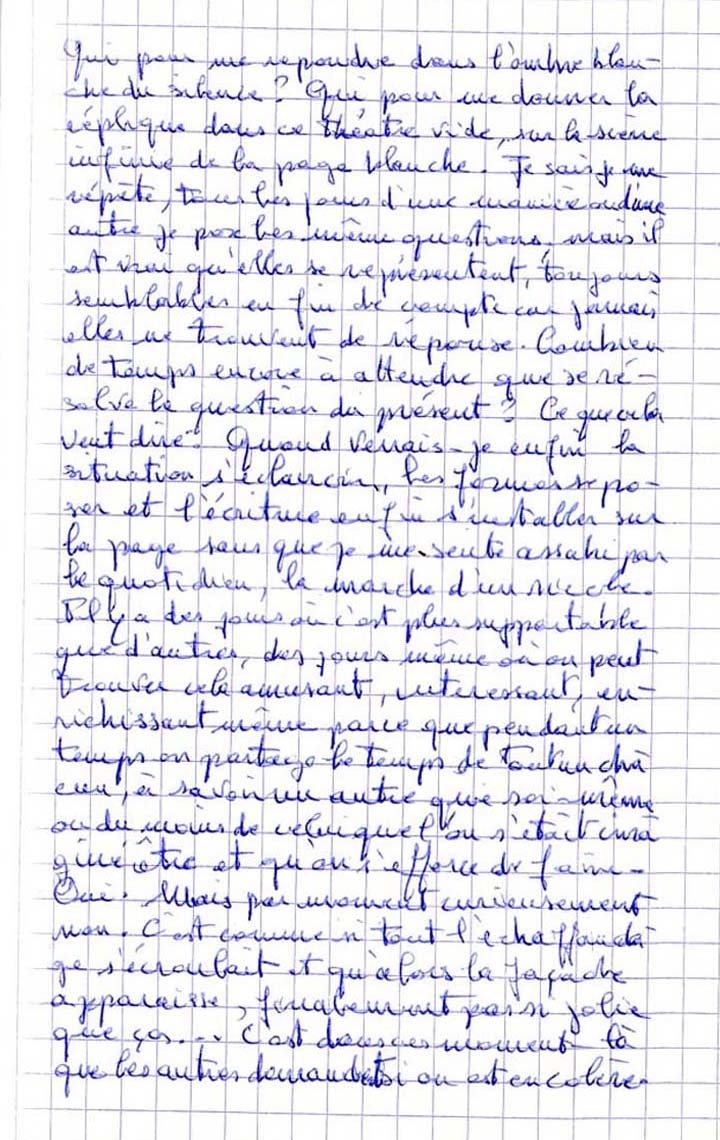 Qui pour me repondre dans l'ombre blan-
che du silence? Qui pour me donner la
réplique dans ce théâtre vide, sur la scène
infinie de la page blanche. Je sais je me
répète, tous les jours d'une manière ou d'une
autre je pose les même questions, mais il
est vrai qu'elles se représentent, toujours
semblables en fin de compte car jamais
elles ne trouvent de réponse. Combien
de temps encore à attendre que se ré-
solve la question du présent? Ce que cela
veut dire? Quand verrais-je enfin la
situation s'éclaircir, les formes se po-
ser et l'écriture enfin s'installer sur
la page sans que je me sente assailli par
le quotidien, la marche d'un siècle.
Il y a des jours où c'est plus supportable
que d'autres, des jours même où on peut
trouver cela amusant, interessant, en-
richissant même parce que pendant un
temps on partage le temps de tout un cha
cun, à savoir un autre que soi-même
ou du moins de celui que l'on s'était ima
giné être et qu'on s'efforce de faire.
Oui. Mais par moment curieusement
non. C'est comme si tout l'échaffauda
ge s'écroulait et qu'alors la façade
apparaisse, finalement pas si jolie
que ça... C'est dans ces moment là
que les autres demandent si on est en colère.